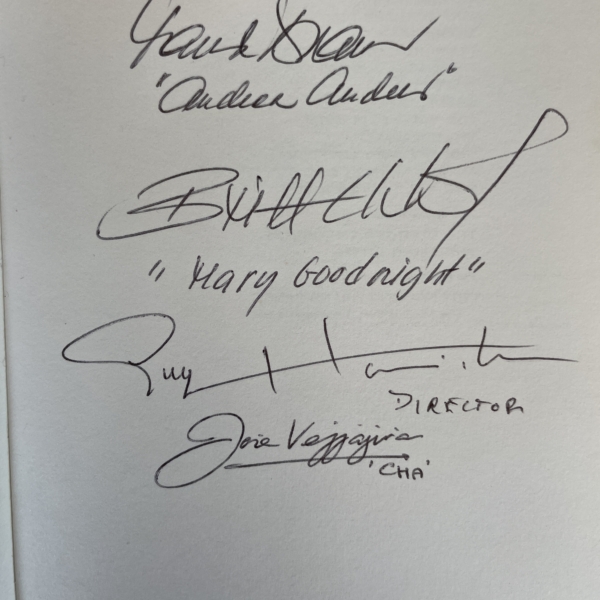 Maud Adams
"Andrea Anders"
Britt Ekland
"Mary Goodnight"
Guy Hamilton
DIRECTOR
Joie Vejjajiva
'CHA'